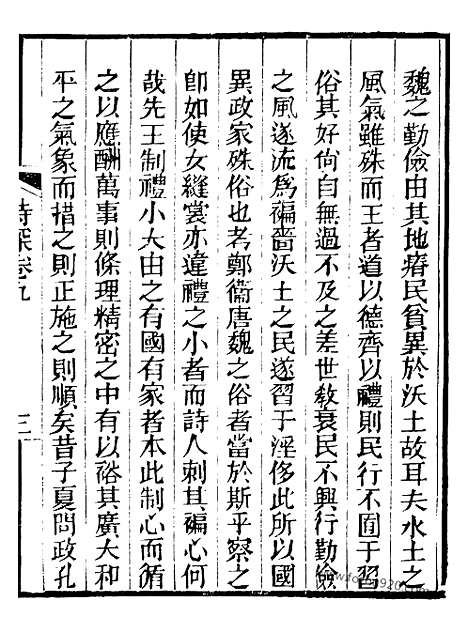 魏之勤儉由其地瘠民貧異於沃土故耳夫水土之
風氣雖殊而王者道以德齊以禮則民行不囿于習
俗其好尙自無過不及之差世敎衰民不興行勤儉
之風遂流爲褊嗇沃土之民遂習于淫侈此所以國
異政家殊俗也考鄭衞唐魏之俗者當於斯乎察之
卽如使女縫裳亦違禮之小者而詩人刺其褊心何
哉先王制禮小大由之有國有家者本此制心而循
之以應酬萬事則條理精密之中有以裕其廣大和
平之氣象而措之則正施之則順矣昔子夏問政孔
詩深卷九
三